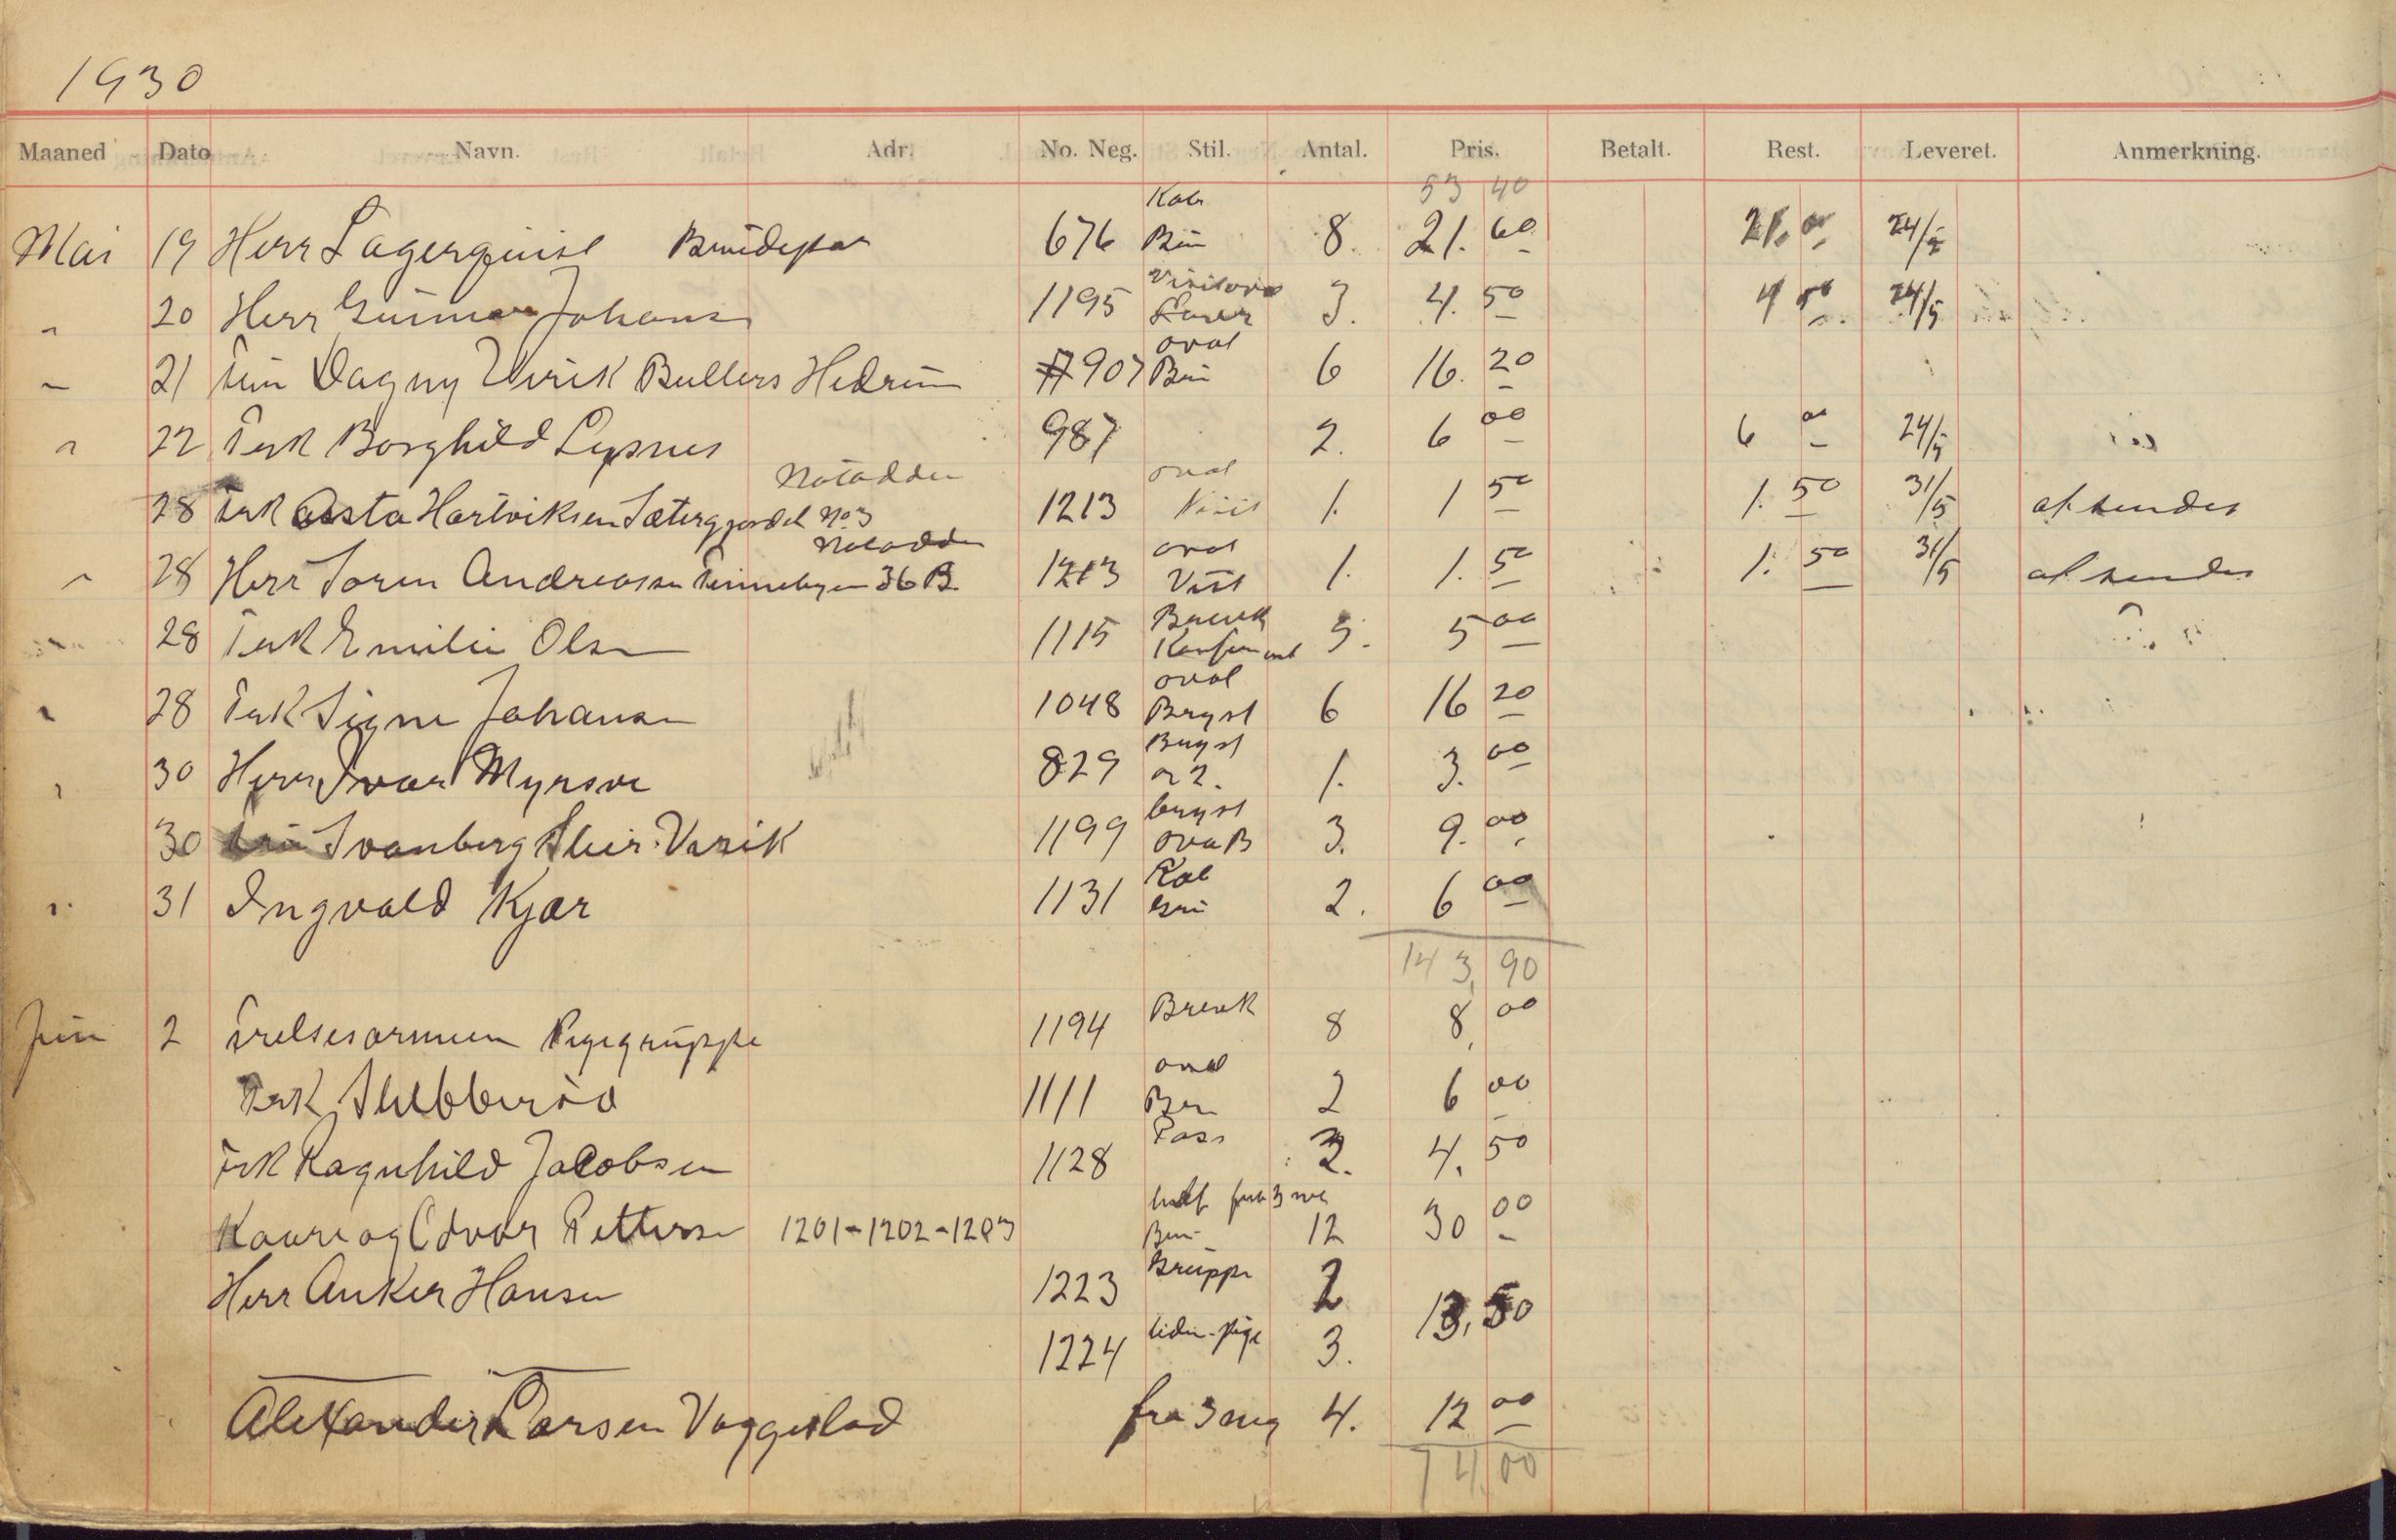 1930
Maaned Dato Navn. Adr. No. Neg. Stil. Antal. Pris. Betalt. Rest. Leveret. Anmerkning.
53 40
Mai 19 Herr Lagerquist Brudepar 676 Kab 8. 21. 60 24/5
20 Herr Gunnar Johans 1195 3. 4. 50 4 50 24/5
21 Dagny Virik Bullers Hedrum 907 oval 6 16. 20
22 Frk Borghild Lysnes 987 2. 6 00 6 00 24/5
Notodden
28 Frk Aasta Hartviksen Sætergjordet No 3 1213 oval Visit 1. 1 50 1. 50 31/5 at sendes
Notodden
28 Herr Soren Andreassen Tinnebyen 36 B. 1213 oval Visit 1. 1. 50 1. 50 31/5 at sendes
28 Frk Emilie Olsen 1115 5. 5 00
28 Frk Signe Johansen 1048 oval Bryst 6 16 20
30 Herr Ivar Myrsve 829 Bryst 1. 3. 00
30 Svanberg Virik 1199 bryst 3. 9. 00
31 Ingvald Kjær 1131 Kab 2. 6 00
143,90
Juni 2 Frelsesarmeen Pigegruppe 1194 8 8, 00
Frk Skibberød 1111 oval 2 6 00
Frk Ragnhild Jacobsen 1128 Pass 4. 50
Kaare og Edvar Pettersen 1201-1202-1203 12 30 00
Herr Anker Hansen 1223 Gruppe 2 13,50
1224 3.
Alexander Larsen Vaggestad fra 3 neg 4. 12 00
74,00